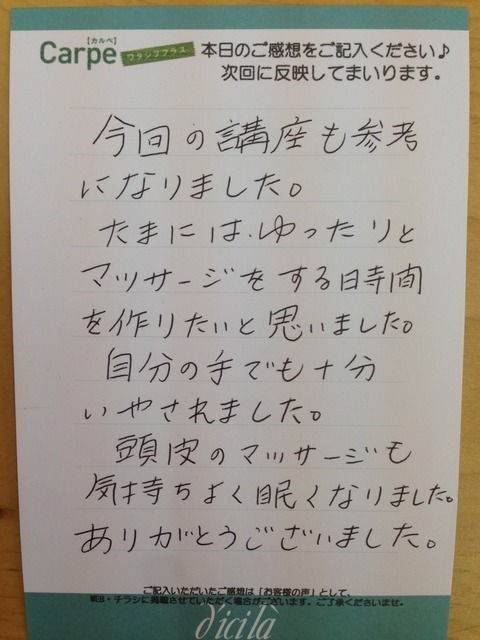 【カルペ】
Carpe
ワラシブプラス
本日のご感想をご記入ください♪
次回に反映してまいります。
今回の講座も参考
になりました。
たまには、ゆったりと
マッサージをする時間
を作りたいと思いました。
自分の手でも十分
いやされました。
頭皮のマッサージも
気持ちよく眠くなりました。
ありがとうございました。
ご記入いただいたご感想は「お客様の声」として、
網日・チラシに掲載させていただく場合がございます。ご了承くださいませ。
d'icilà